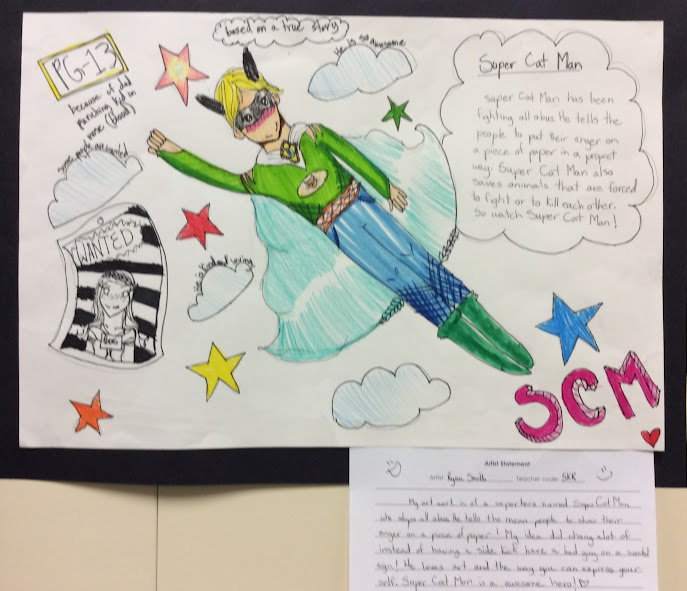 PG-13
because of dad
punching kid in
nose (blood)
based on a true story
He is so awesome
Super Cat Man
Super Cat Man has been
fighting all abus. He tells the
people to put their enger on
a piece of paper in a propret
way. Super Cat Man also
saves animals that are forced
to fight or to kill each other.
So watch Super Cat Man!
WANTED
SCM
Artist Statement
Artist: Ryan Smith Teacher code: SKR
My art work is of a superhero named Super Cat Man
who stops all abus. He tells the mean people to show their
enger on a piece of paper! My idea did chang alot of
instead of having a side kick have a bad guy on a wanted
sign! He loves art and the way you can express your
self. Super Cat Man is a awesome hero!